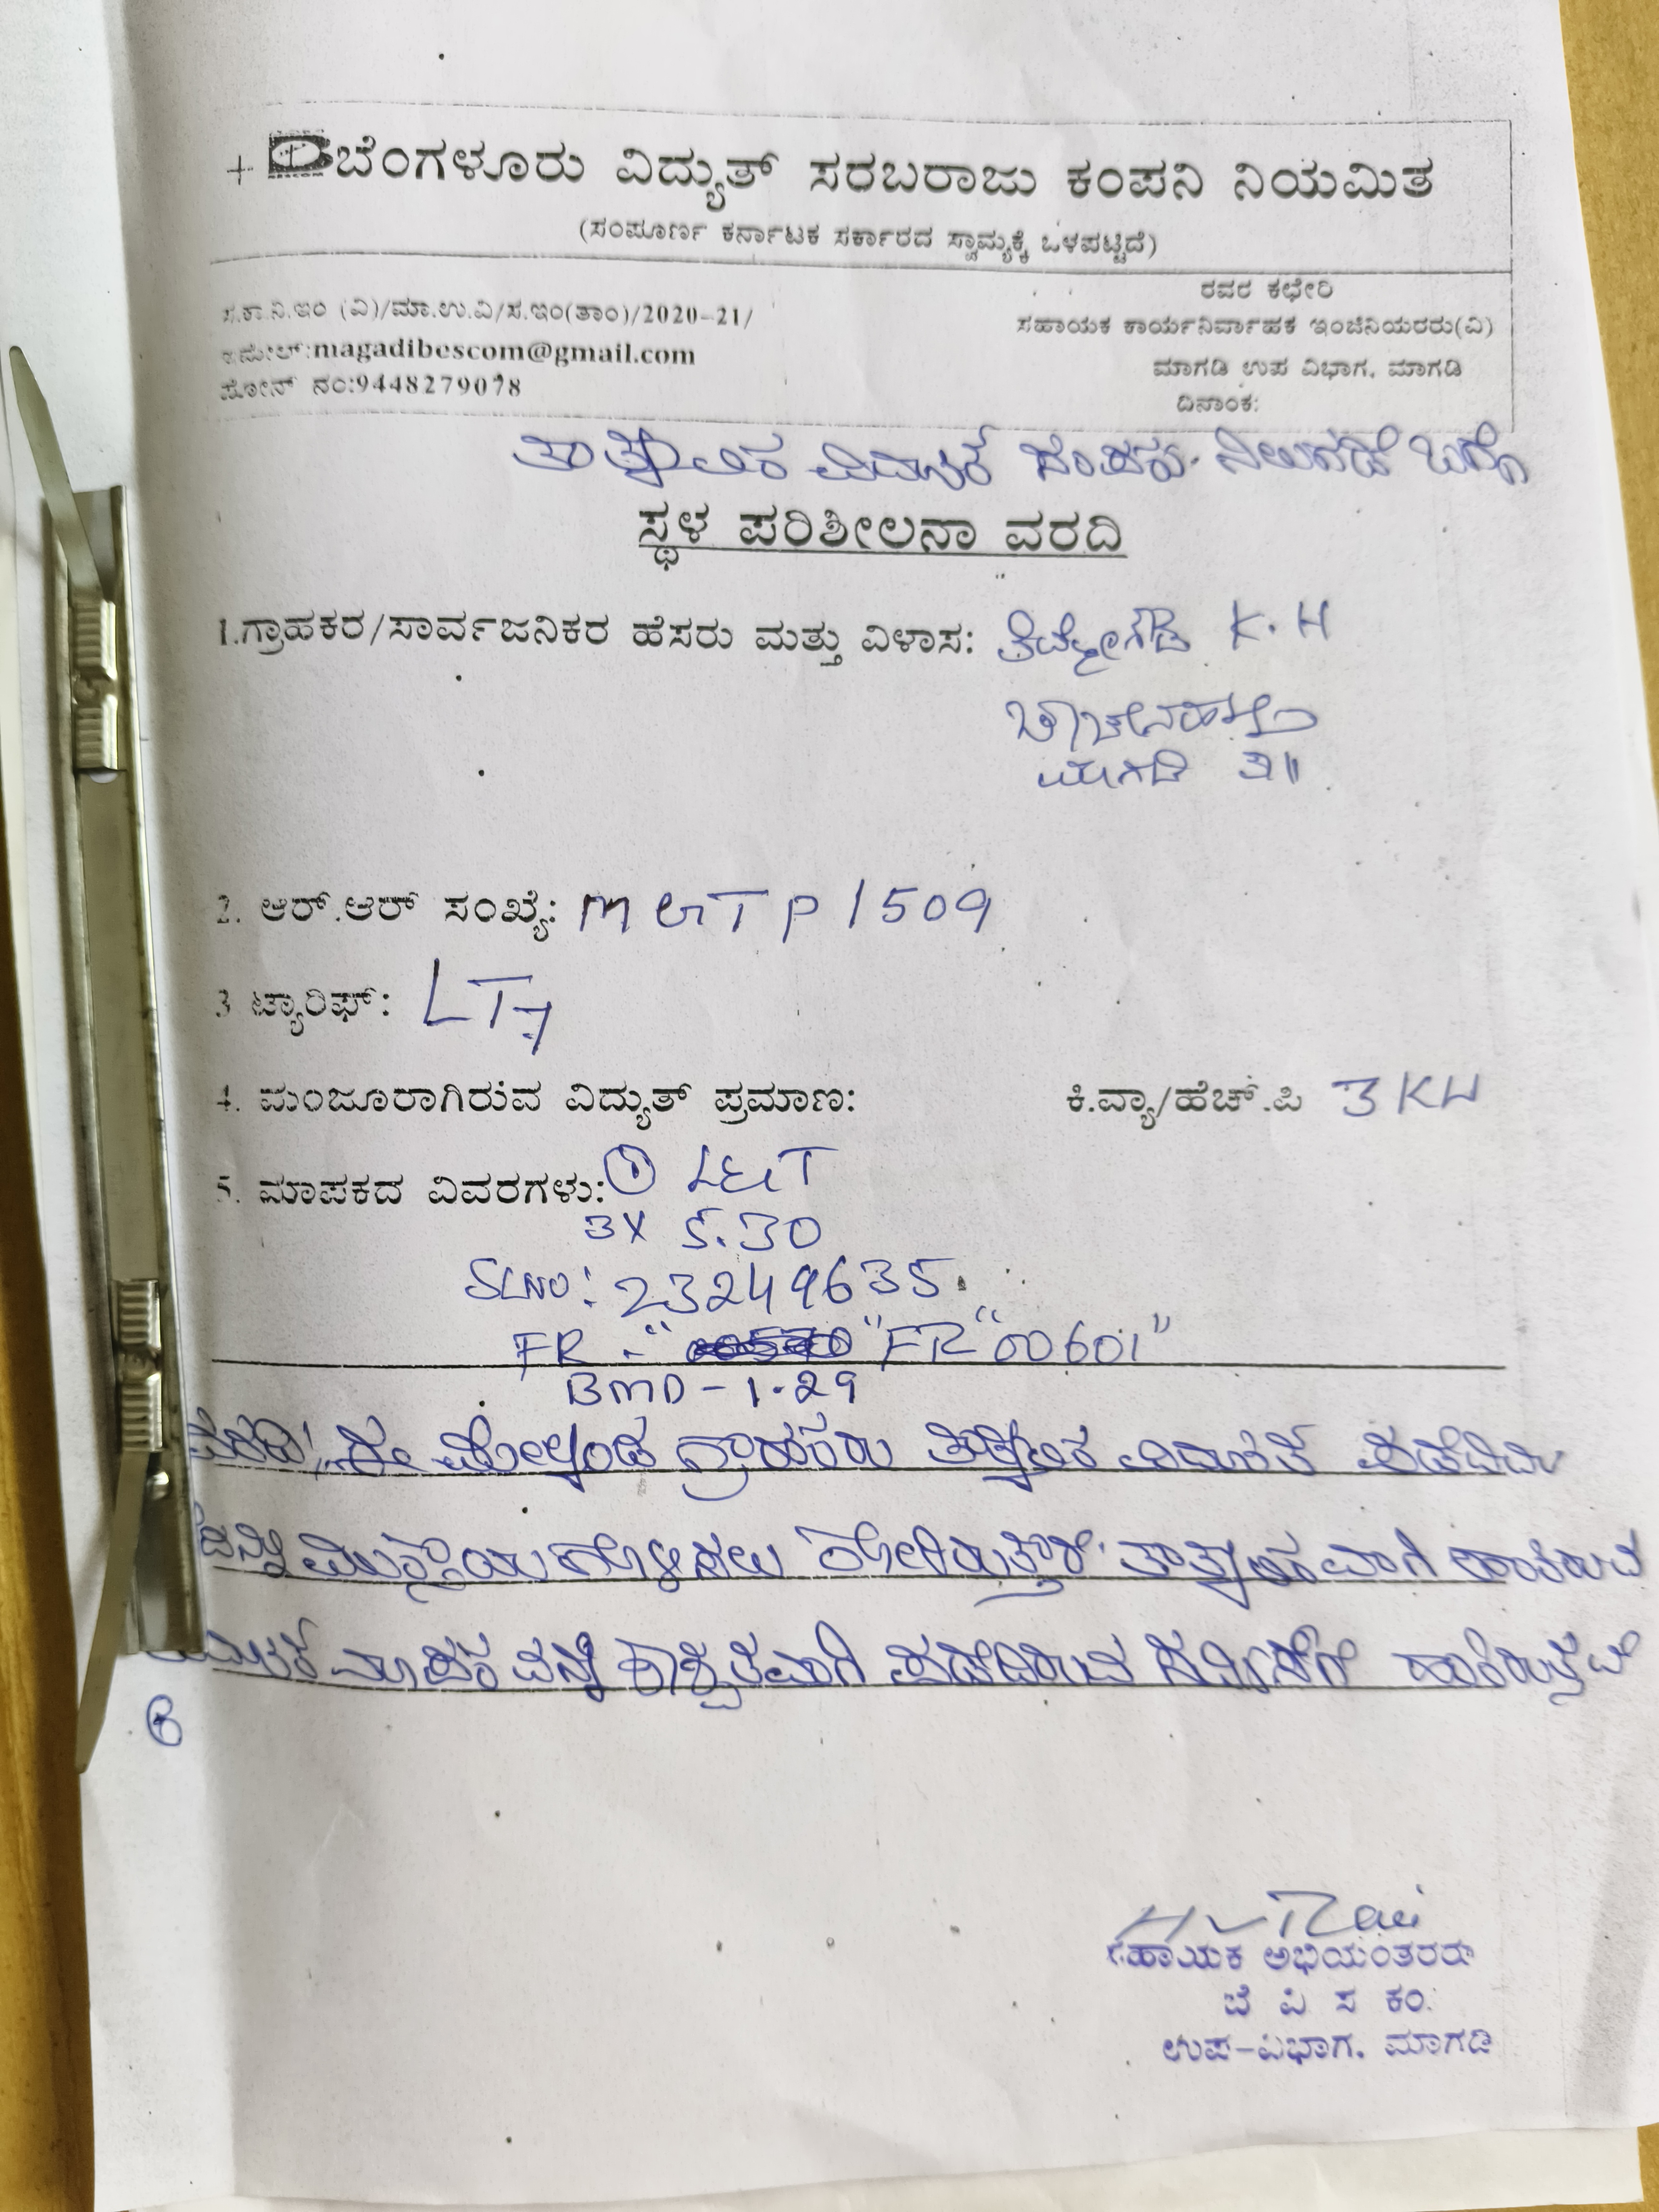 ಬೆಂಗಳೂರು ವಿದ್ಯುತ್ ಸರಬರಾಜು ಕಂಪನಿ ನಿಯಮಿತ
(ಸಂಪೂರ್ಣ ಕರ್ನಾಟಕ ಸರ್ಕಾರದ ಸ್ವಾಮ್ಯಕ್ಕೆ ಒಳಪಟ್ಟಿದೆ)
ಸ.ಕಾ.ನಿ.ಇಂ (ವಿ)/ಮಾ.ಉ.ವಿ/ಸ.ಇಂ(ತಾಂ)/2020-21/
ಇಮೇಲ್:magadibescom@gmail.com
ಫೋನ್ ನಂ:9448279078
ರವರ ಕಛೇರಿ
ಸಹಾಯಕ ಕಾರ್ಯನಿರ್ವಾಹಕ ಇಂಜಿನಿಯರರು(ವಿ)
ಮಾಗಡಿ ಉಪ ವಿಭಾಗ, ಮಾಗಡಿ
ದಿನಾಂಕ:
ತಾತ್ಕಾಲಿಕ ವಿದ್ಯುತ್ ಸಂಪರ್ಕ ನಿಲುಗಡೆ ಬಗ್ಗೆ
ಸ್ಥಳ ಪರಿಶೀಲನಾ ವರದಿ
1.ಗ್ರಾಹಕರ/ಸಾರ್ವಜನಿಕರ ಹೆಸರು ಮತ್ತು ವಿಳಾಸ: K.H
ಮಾಗಡಿ ತಾ||
2. ಆರ್.ಆರ್ ಸಂಖ್ಯೆ: MGTP1509
3 ಟ್ಯಾರಿಫ್: LT7
4. ಮಂಜೂರಾಗಿರುವ ವಿದ್ಯುತ್ ಪ್ರಮಾಣ: ಕಿ.ವ್ಯಾ/ಹೆಚ್.ಪಿ 3KW
5. ಮಾಪಕದ ವಿವರಗಳು: ① L&T
3X 5.30
SLNO: 23249635.
FR - " " FR "00601"
BMD - 1.29
ವರದಿ: ಈ ಮೇಲ್ಕಂಡ ಗ್ರಾಹಕರು ತಾತ್ಕಾಲಿಕ ವಿದ್ಯುತ್
ಕೋರಿರುತ್ತಾರೆ. ತಾತ್ಕಾಲಿಕವಾಗಿ
ಮಾಪಕವನ್ನು ಶಾಶ್ವತವಾಗಿ ಪಡೆದಿರುವ
H V Ravi
ಸಹಾಯಕ ಅಭಿಯಂತರರು
ಬೆ ವಿ ಸ ಕಂ.
ಉಪ-ವಿಭಾಗ, ಮಾಗಡಿ